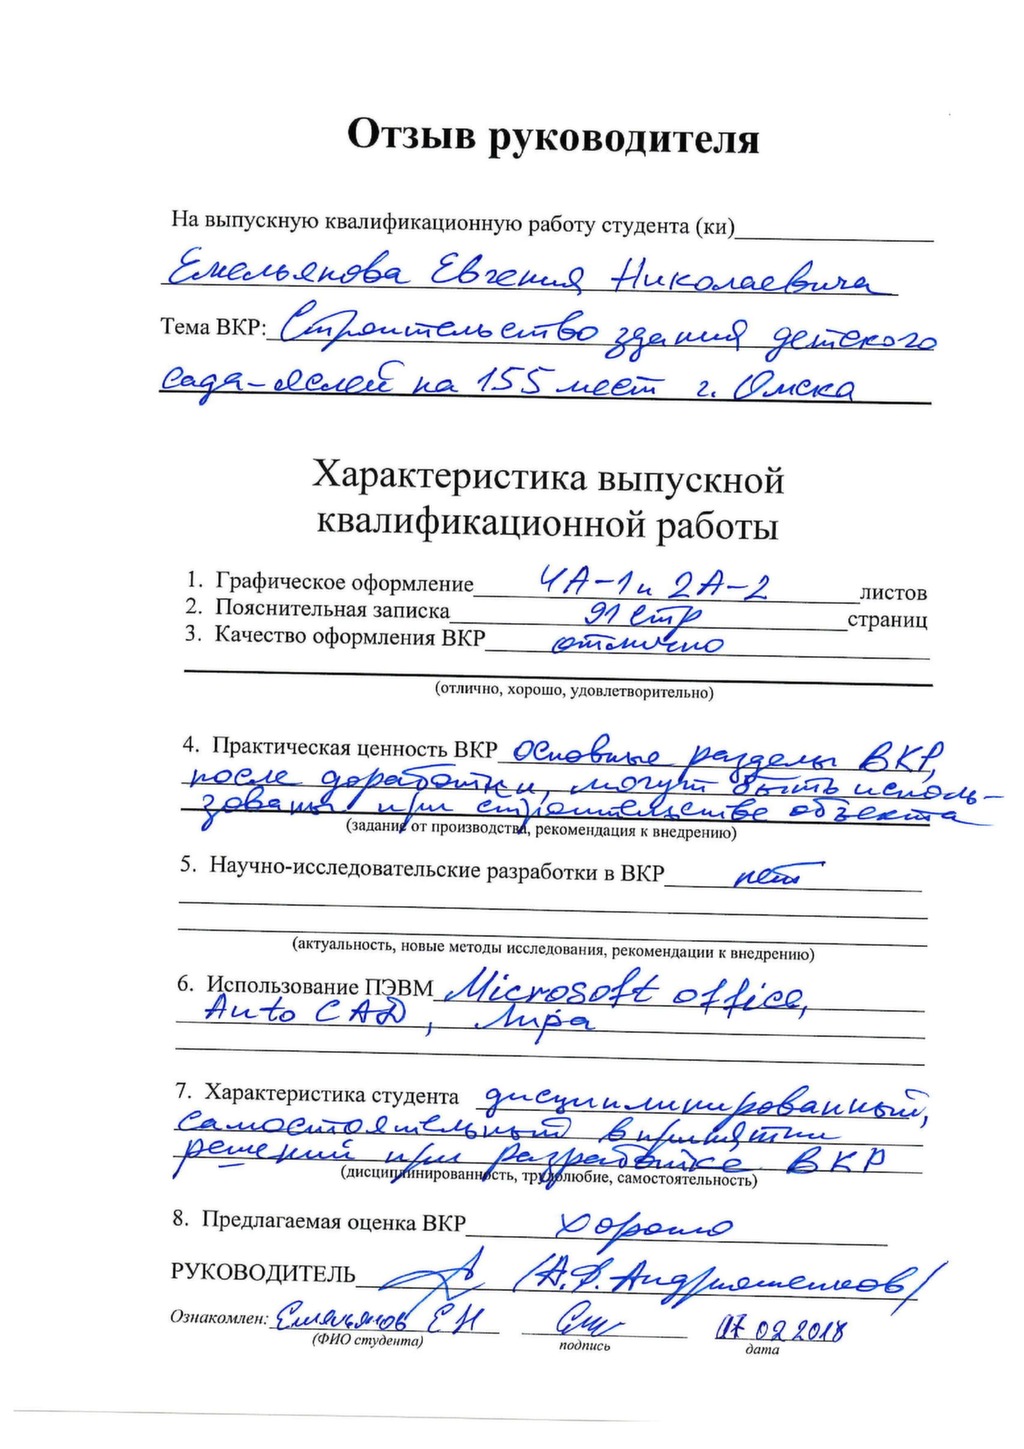 Отзыв руководителя
На выпускную квалификационную работу студента (ки)
Емельянова Евгения Николаевича
Тема ВКР: Строительство здания детского
сада-яслей на 155 мест г. Омска
Характеристика выпускной
квалификационной работы
1. Графическое оформление 4А-1 и 2А-2 листов
2. Пояснительная записка 91 стр страниц
3. Качество оформления ВКР отлично
(отлично, хорошо, удовлетворительно)
4. Практическая ценность ВКР основные разделы ВКР,
после доработки, могут быть исполь-
зованы при строительстве объекта
(задание от производства, рекомендация к внедрению)
5. Научно-исследовательские разработки в ВКР нет
(актуальность, новые методы исследования, рекомендации к внедрению)
6. Использование ПЭВМ Microsoft office,
Auto CAD, Лира
7. Характеристика студента дисциплинированный,
самостоятельный в принятии
решений при разработке ВКР
(дисциплинированность, трудолюбие, самостоятельность)
8. Предлагаемая оценка ВКР хорошо
РУКОВОДИТЕЛЬ /А.Ф. Андрюшенков/
Ознакомлен: Емельянов ЕН 07 02 2018
(ФИО студента) подпись дата